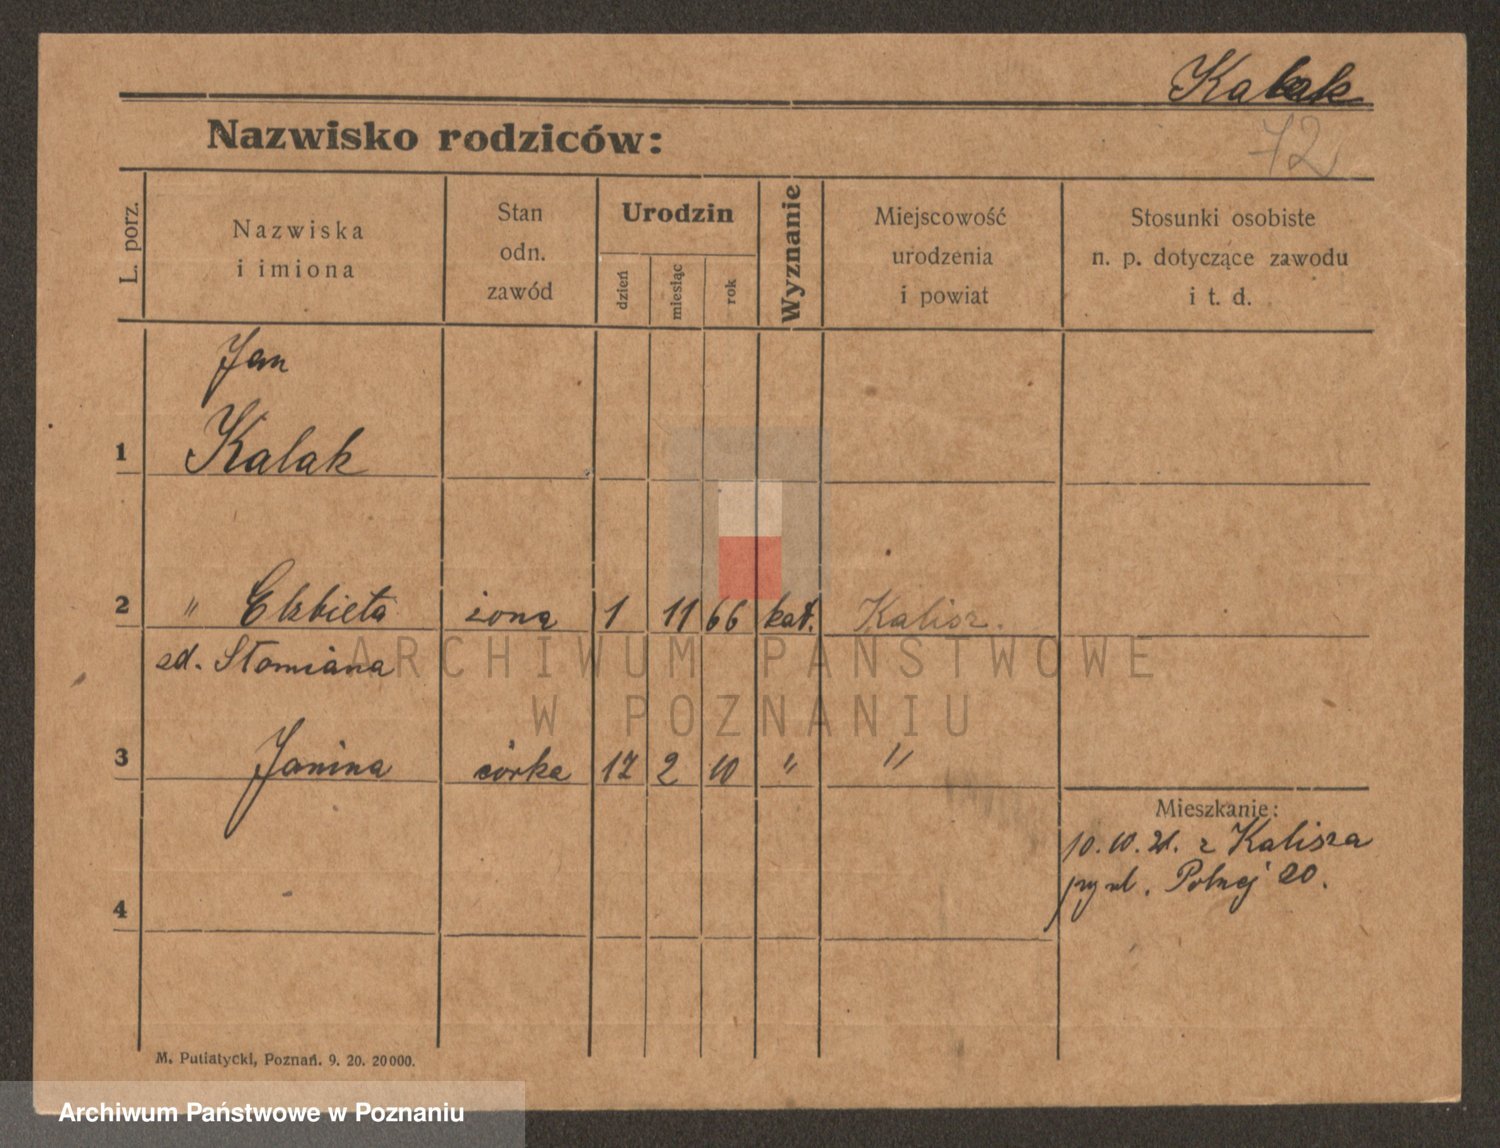 Kalak
72
Nazwisko rodziców:
L. porz.
Nazwiska
i imiona
Stan
odn.
zawód
Urodzin
dzień
miesiąc
rok
Wyznanie
Miejscowość
urodzenia
i powiat
Stosunki osobiste
n. p. dotyczące zawodu
i t. d.
Jan
1 Kalak
2 " Elżbieta żona 1 11 66 kat. Kalisz.
zd. Słomiana
ARCHIWUM PAŃSTWOWE
W POZNANIU
3 Janina córka 17 2 10 " "
Mieszkanie:
10.10.21. z Kalisza
przy ul. Polnej 20.
4
M. Putiatycki, Poznań. 9. 20. 20000.
Archiwum Państwowe w Poznaniu